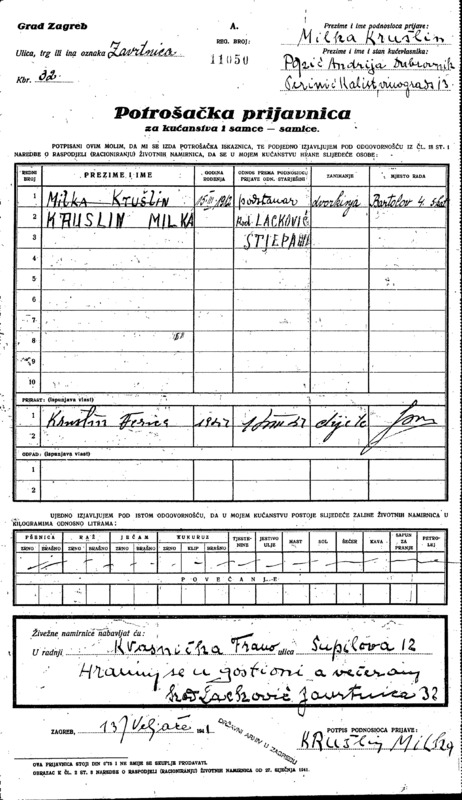 Grad Zagreb
A.
Prezime i ime podnosioca prijave:
Milka Krušlin
Ulica, trg ili ina oznaka Zavrtnica
REG. BROJ:
11050
Prezime i ime i stan kućevlasnika:
Popić Andrija Dubrovnik
Kbr. 32
Perinić Kalist vinogradi 13
Potrošačka prijavnica
za kućanstva i samce — samice.
POTPISANI OVIM MOLIM, DA MI SE IZDA POTROŠAČKA ISKAZNICA, TE PODJEDNO IZJAVLJUJEM POD ODGOVORNOŠĆU IZ ČL. 18 ST. 1
NAREDBE O RASPODJELI (RACIONIRANJU) ŽIVOTNIH NAMIRNICA, DA SE U MOJEM KUĆANSTVU HRANE SLIJEDEĆE OSOBE:
REDNI BROJ PREZIME I IME GODINA ROĐENJA ODNOS PREMA PODNOSIOCU PRIJAVE ODN. STARJEŠINI ZANIMANJE MJESTO RADA
1 Milka Krušlin 1912 podstanar dvorkinja Bartolov 4
2 KRUSLIN MILKA kod LACKOVIĆ
3 STJEPAN
4
5
6
7
8
9
10
PRIRAST: (Ispunjava vlast)
1 Kruslin 1947 dijete
2
OTPAD: (Ispunjava vlast)
1
2
UJEDNO IZJAVLJUJEM POD ISTOM ODGOVORNOŠĆU, DA U MOJEM KUĆANSTVU POSTOJE SLIJEDEĆE ZALIHE ŽIVOTNIH NAMIRNICA U
KILOGRAMIMA ODNOSNO LITRAMA:
PŠENICA RAŽ JEČAM KUKURUZ TJESTENINE JESTIVO ULJE MAST SOL ŠEĆER KAVA SAPUN ZA PRANJE PETROLEJ
ZRNO BRAŠNO ZRNO BRAŠNO ZRNO BRAŠNO ZRNO KLIP BRAŠNO
POVEĆANJE
Živežne namirnice nabavljat ću:
U radnji Kvasnička Franjo ulica Supilova 12
Hranim se u gostioni a večeram
kod Lacković Zavrtnica 32
ZAGREB, 13 Veljače 1941
DRŽAVNI ARHIV U ZAGREBU
POTPIS PODNOSIOCA PRIJAVE:
KRušlin Milka
OVA PRIJAVNICA STOJI DIN 0'75 I NE SMIJE SE SKUPLJE PRODAVATI.
OBRAZAC K ČL. 2 ST. 2 NAREDBE O RASPODJELI (RACIONIRANJU) ŽIVOTNIH NAMIRNICA OD 27. SIJEČNJA 1941.